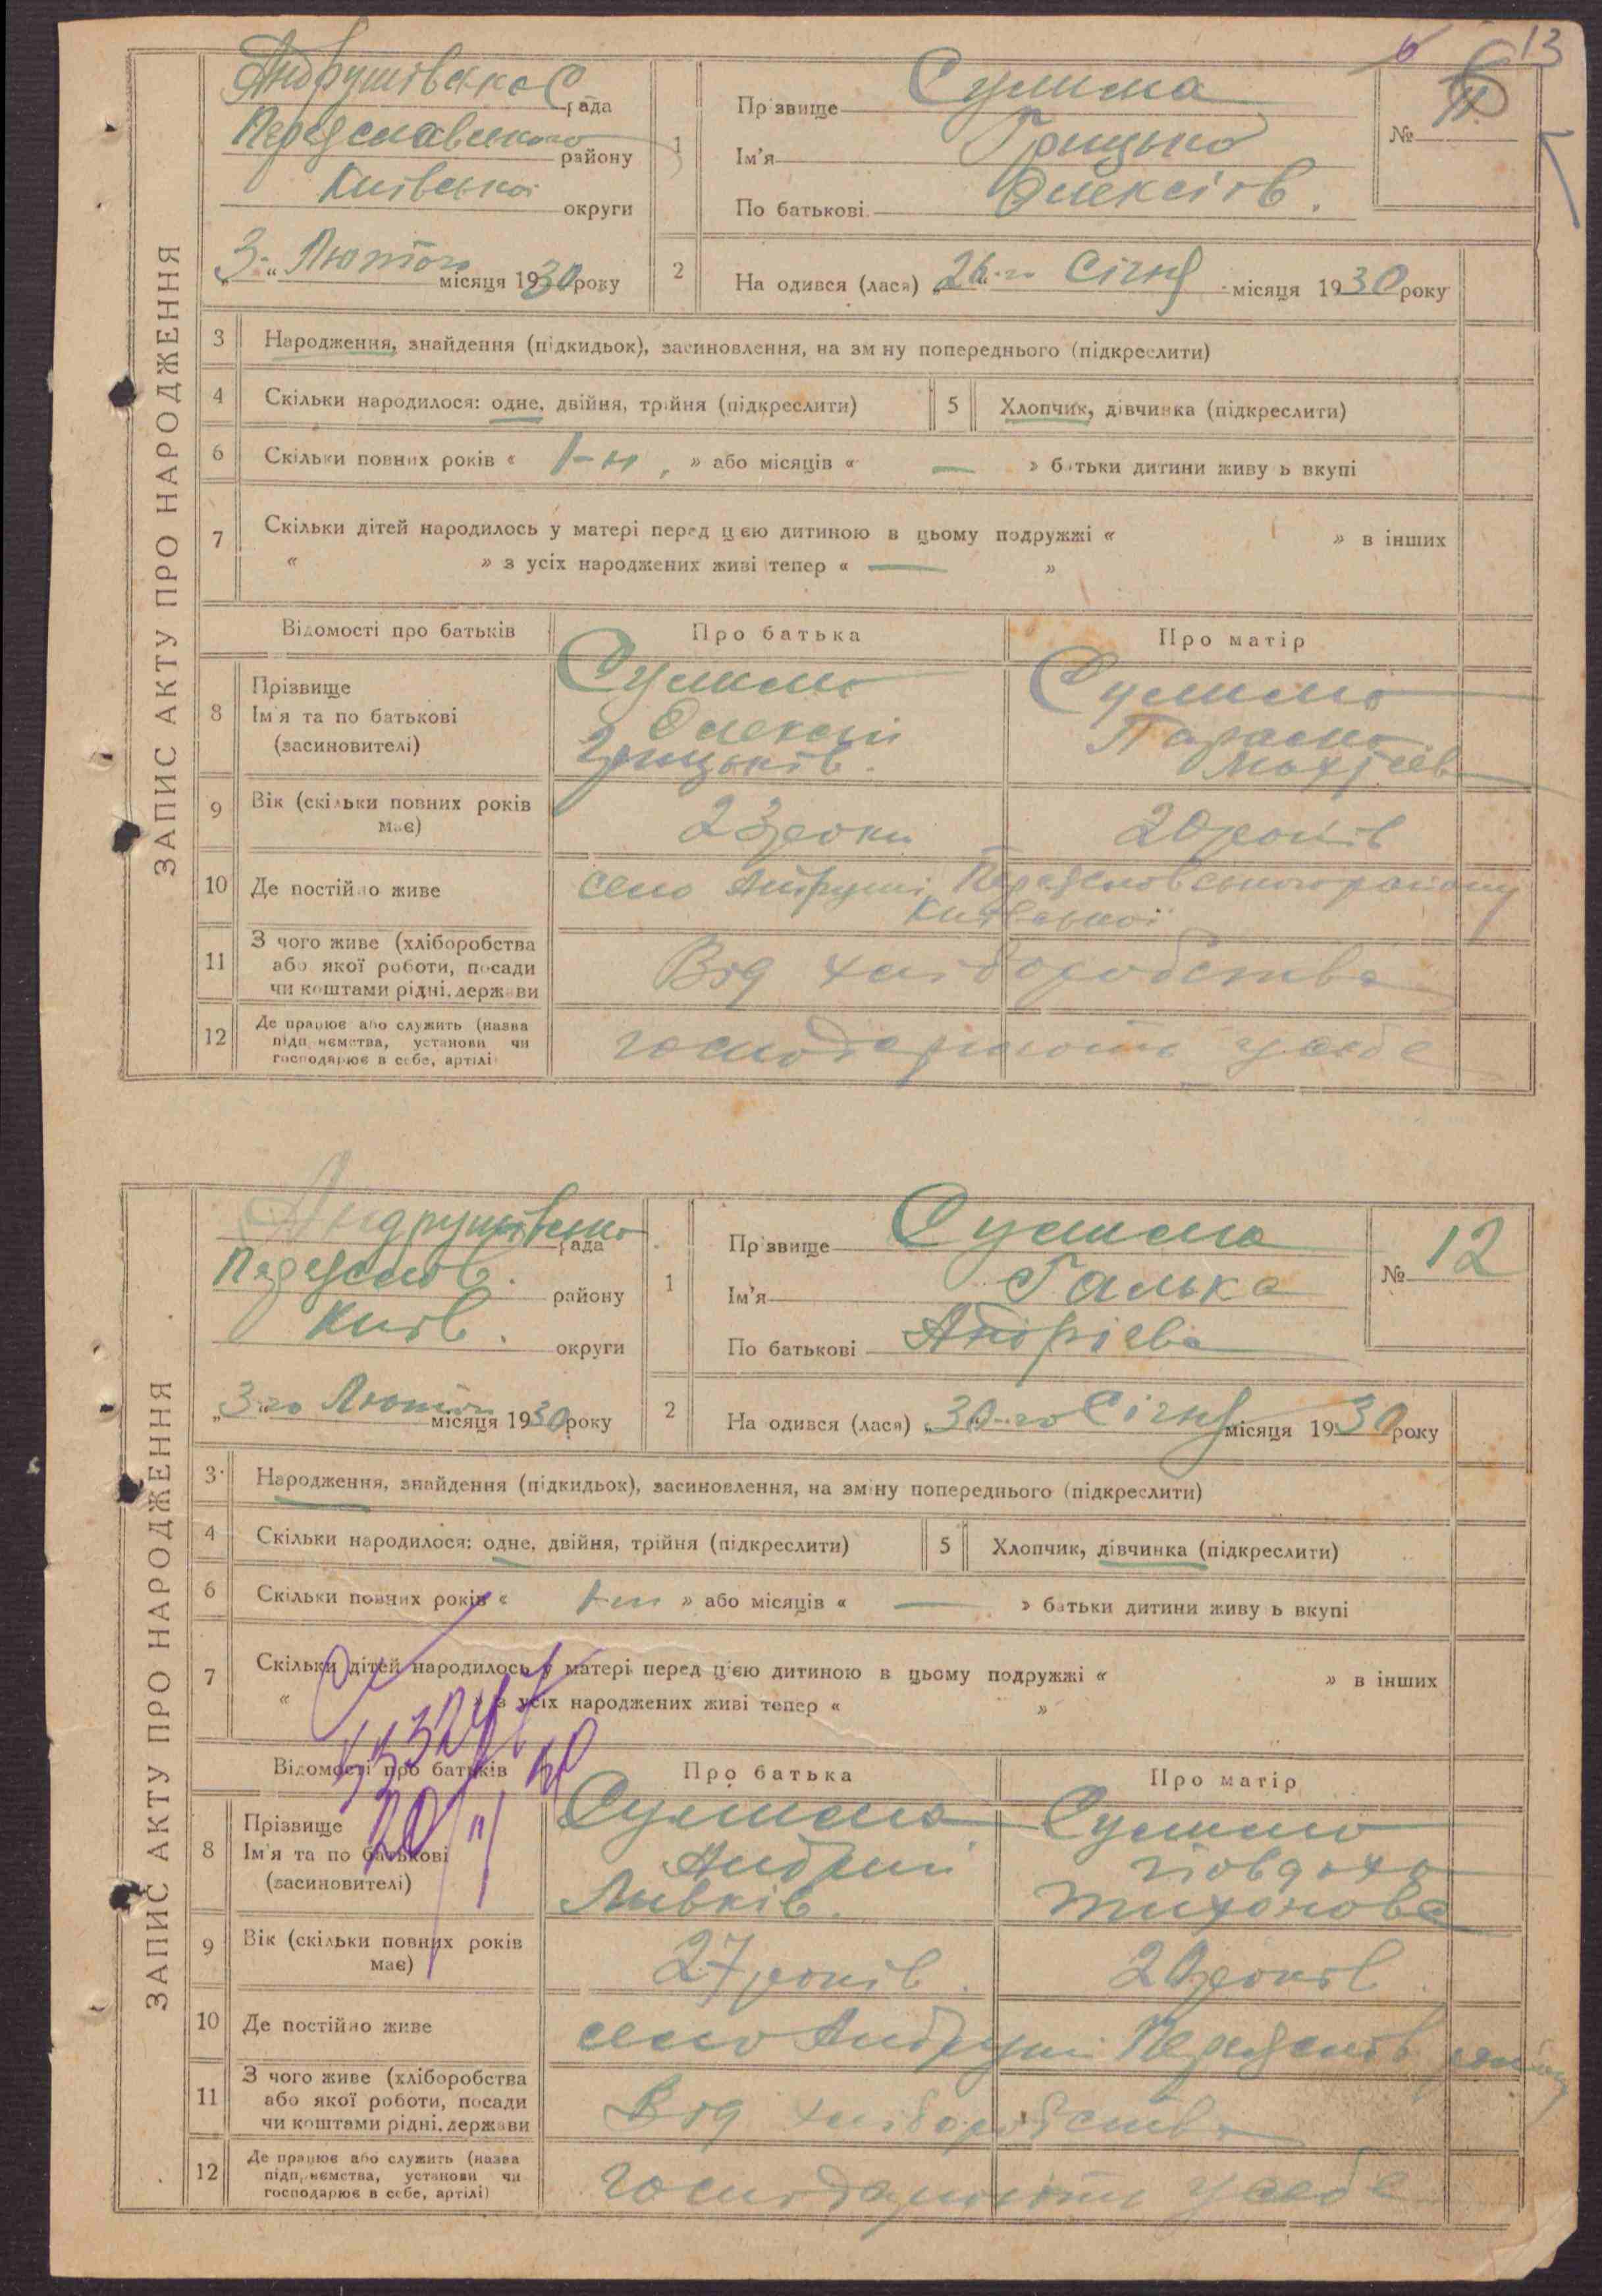 13
ЗАПИС АКТУ ПРО НАРОДЖЕННЯ
Андрушівська рада
Переяславського району
Київської округи
„3“ Лютого місяця 1930 року
1
Прізвище Сулима
Ім'я Грицько
По батькові Олексіїв.
№
2
На одився (лася) „26-го“ Січня місяця 1930 року
3 Народження, знайдення (підкидьок), засиновлення, на зміну попереднього (підкреслити)
4 Скільки народилося: одне, двійня, трійня (підкреслити)
5 Хлопчик, дівчинка (підкреслити)
6 Скільки повних років « 1-н, » або місяців « — » батьки дитини живуть вкупі
7 Скільки дітей народилось у матері перед цією дитиною в цьому подружжі « » в інших
« » з усіх народжених живі тепер « — »
Відомості про батьків Про батька Про матір
8 Прізвище
Ім'я та по батькові
(засиновителі)
Сулима
Олексій
Грицьків.
Сулима
Параска
9 Вік (скільки повних років має)
23 роки
20 років
10 Де постійно живе
село Андруші Переяславського району
Київської
11 З чого живе (хліборобства
або якої роботи, посади
чи коштами рідні, держави
Від хліборобства
12 Де працює або служить (назва
підприємства, установи чи
господарює в себе, артілі)
господарюють у себе
ЗАПИС АКТУ ПРО НАРОДЖЕННЯ
Андрушівська рада
Переяслав. району
Київ. округи
„3-го“ Лютого місяця 1930 року
1
Прізвище Сулима
Ім'я Галька
По батькові Андрієва
№ 12
2
На одився (лася) „30-го Січня місяця 1930 року
3 Народження, знайдення (підкидьок), засиновлення, на зміну попереднього (підкреслити)
4 Скільки народилося: одне, двійня, трійня (підкреслити)
5 Хлопчик, дівчинка (підкреслити)
6 Скільки повних років « » або місяців « — » батьки дитини живуть вкупі
7 Скільки дітей народилось у матері перед цією дитиною в цьому подружжі « » в інших
« » з усіх народжених живі тепер « »
Відомості про батьків Про батька Про матір
8 Прізвище
Ім'я та по батькові
(засиновителі)
Сулима
Андрій
Левків.
Сулима
Тихонова
9 Вік (скільки повних років має)
27 років.
20 років.
10 Де постійно живе
село Андруші Переяслав району
11 З чого живе (хліборобства
або якої роботи, посади
чи коштами рідні, держави
Від хліборобства
12 Де працює або служить (назва
підприємства, установи чи
господарює в себе, артілі)
господарюють у себе